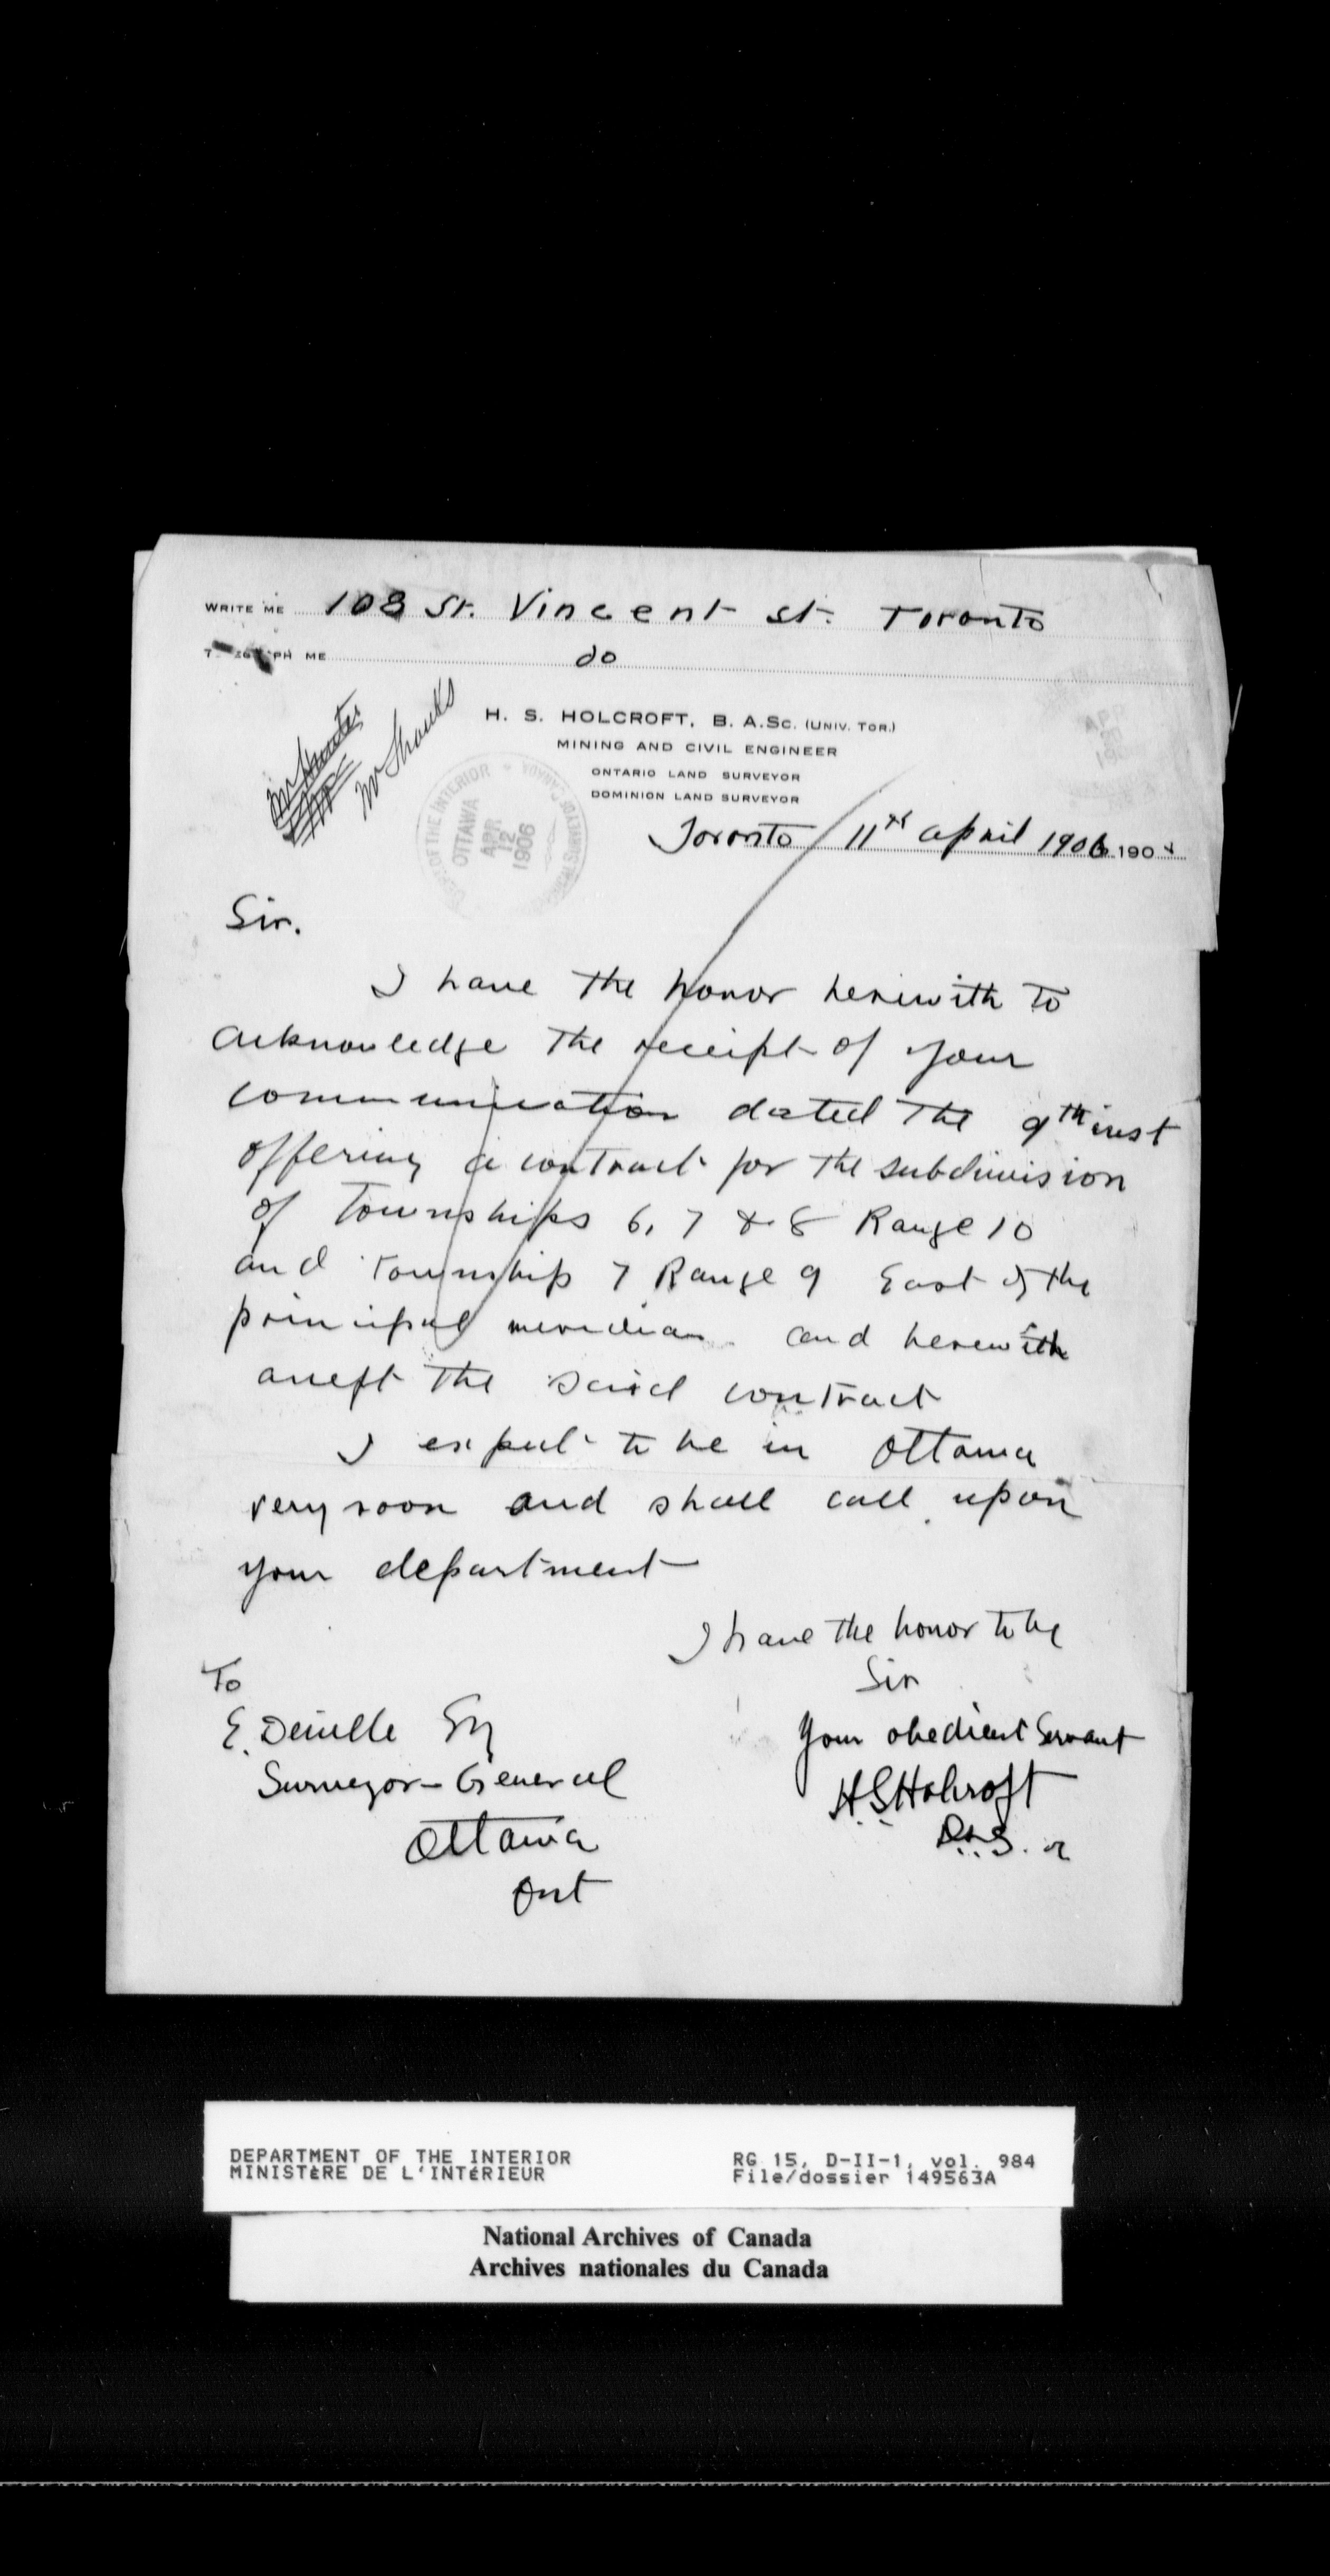 WRITE ME 108 St. Vincent st. Toronto
PH ME do
Mr Shanks
H. S. HOLCROFT, B. A.Sc. (UNIV. TOR.)
MINING AND CIVIL ENGINEER
ONTARIO LAND SURVEYOR
DOMINION LAND SURVEYOR
DEPT OF THE INTERIOR
OTTAWA
APR
12
1906
Toronto 11th April 1906 190
Sir.
I have the honor herewith to
acknowledge the receipt of your
communication dated the 9th inst
offering a contract for the subdivision
of Townships 6, 7 & 8 Range 10
and Township 7 Range 9 East of the
principal meridian and herewith
accept the said contract
I expect to be in Ottawa
very soon and shall call upon
your department
I have the honor to be
Sir
Your obedient Servant
H.S. Holcroft
D.L.S.
To
E. Deville Esq
Surveyor-General
Ottawa
Ont
DEPARTMENT OF THE INTERIOR
MINISTÈRE DE L'INTÉRIEUR
RG 15, D-II-1, vol. 984
File/dossier 149563A
National Archives of Canada
Archives nationales du Canada